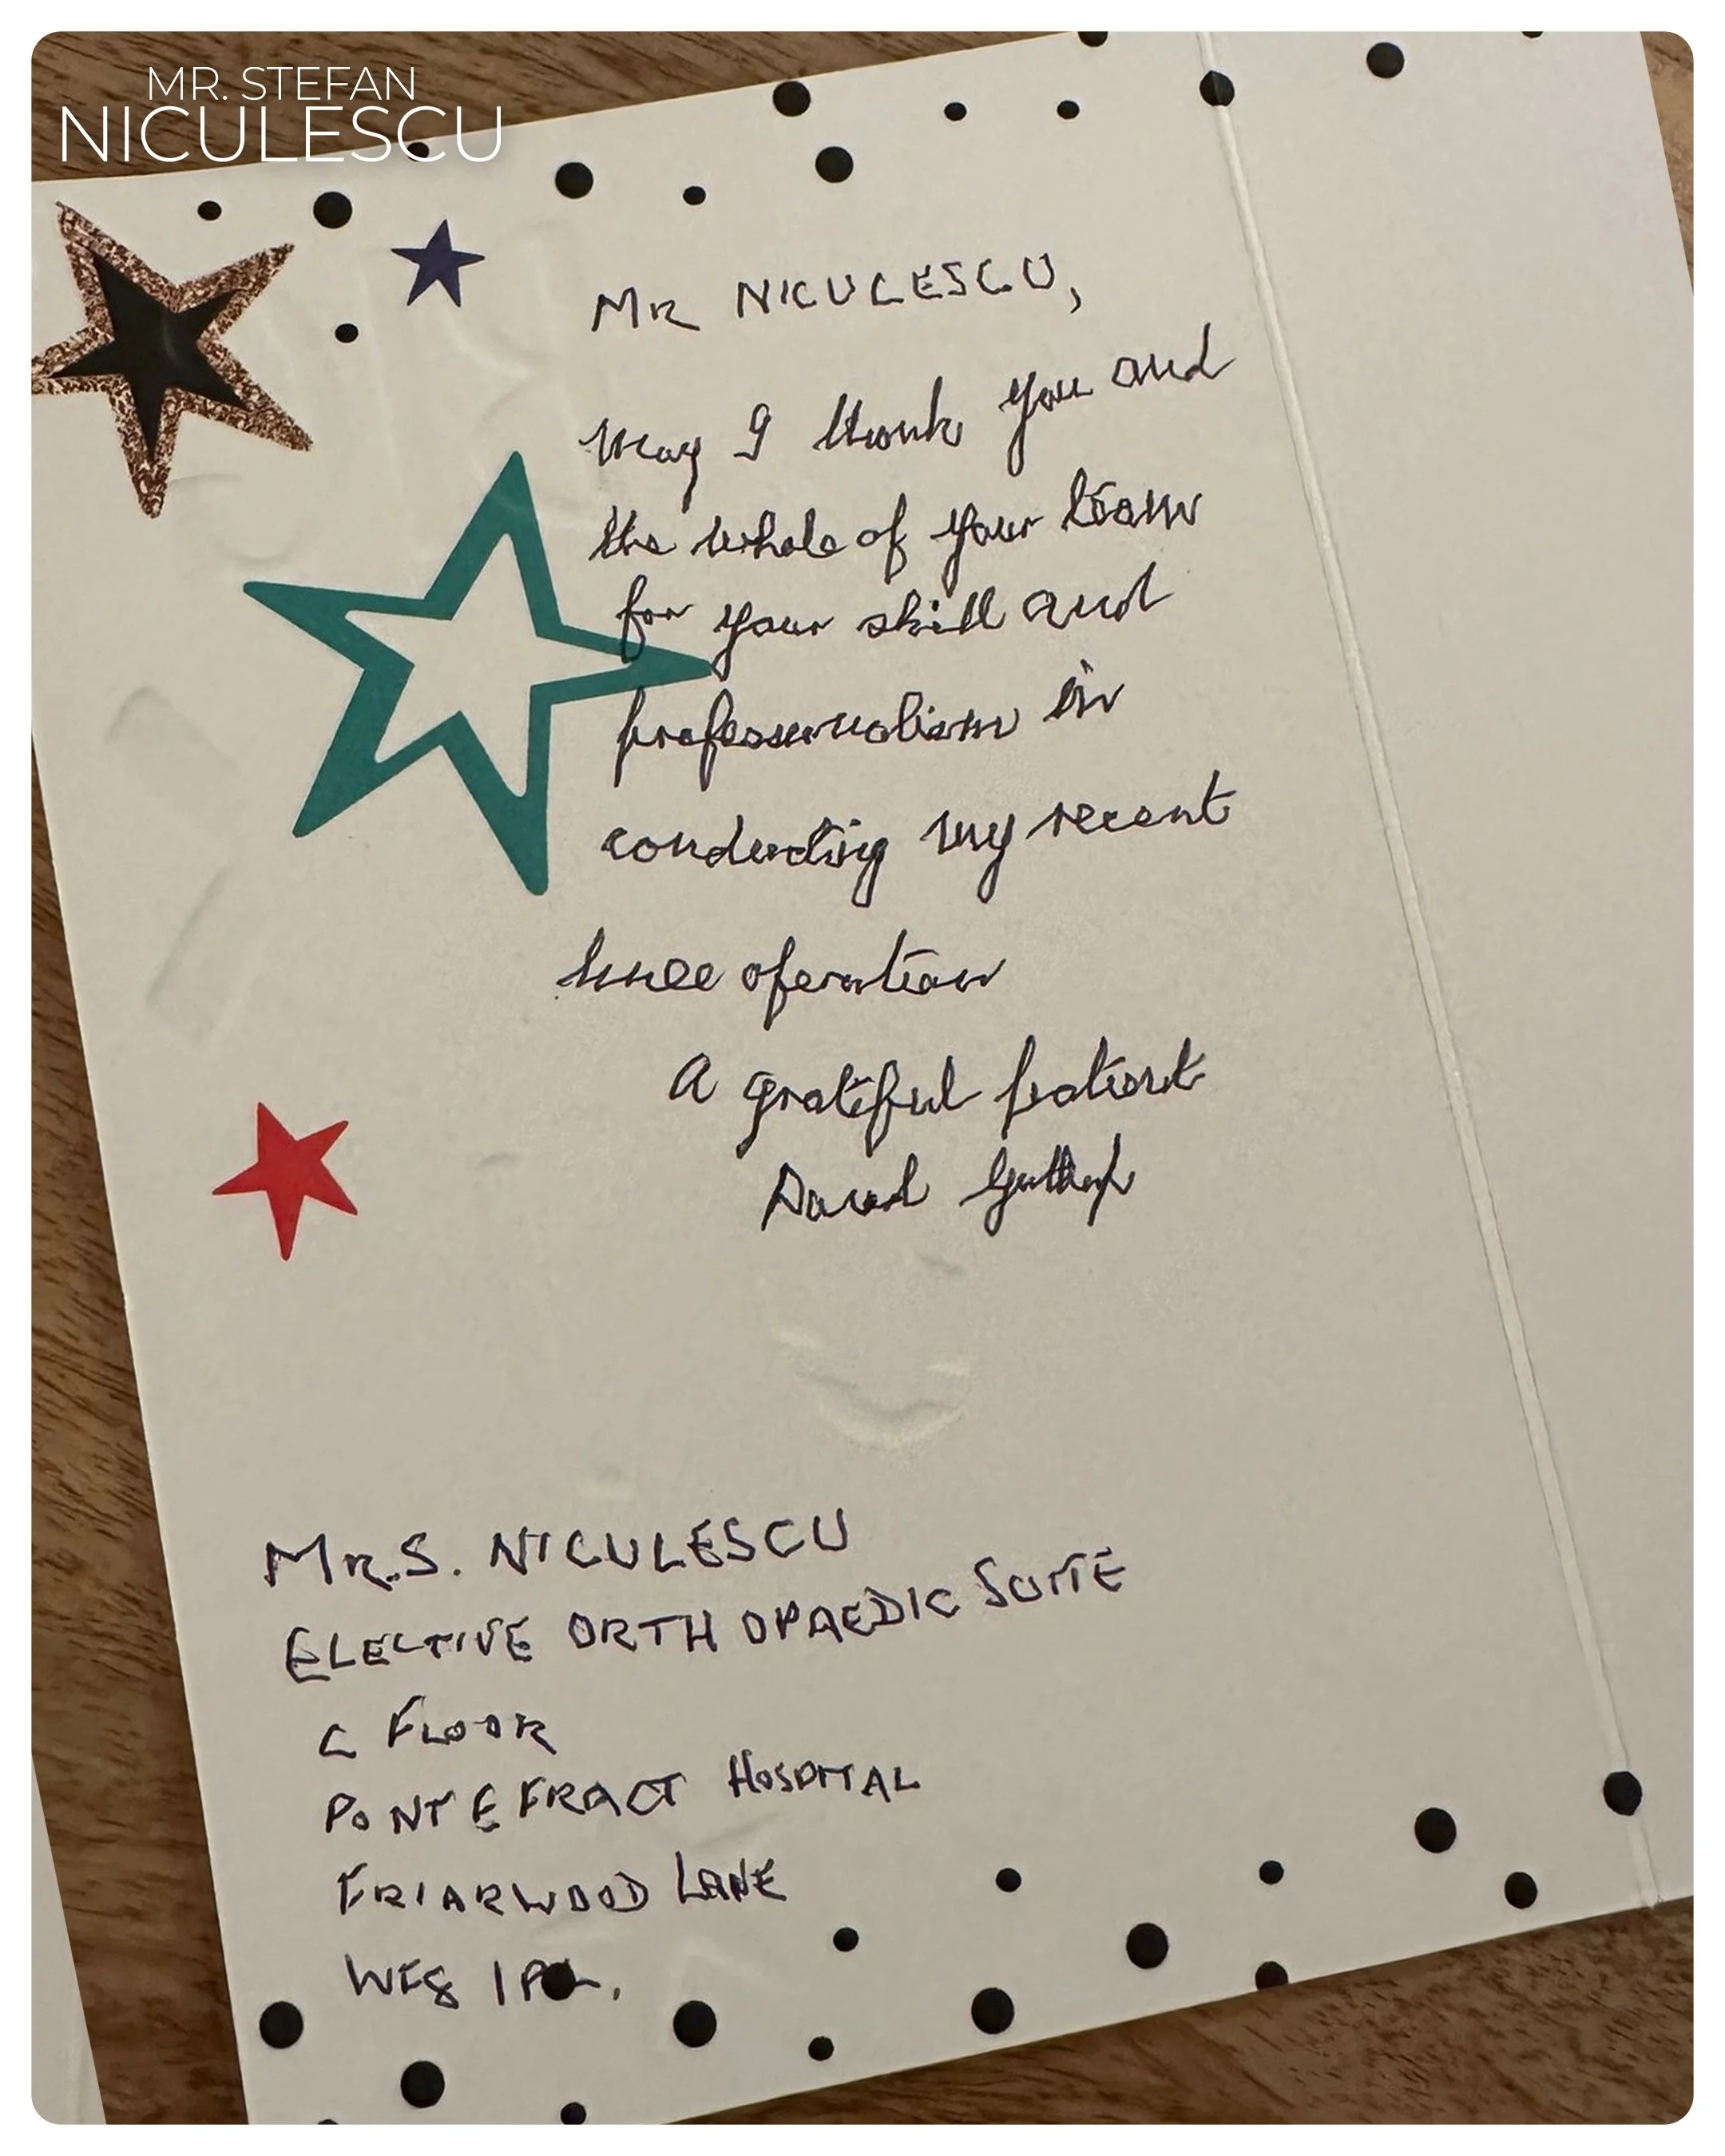 MR. STEFAN
NICULESCU
MR NICULESCU,
May I thank you and
the whole of your team
for your skill and
professionalism in
conducting my recent
knee operation
A grateful patient
David
MR.S. NICULESCU
ELECTIVE ORTHOPAEDIC SUITE
C FLOOR
PONTEFRACT HOSPITAL
FRIARWOOD LANE
WF8 1PL.